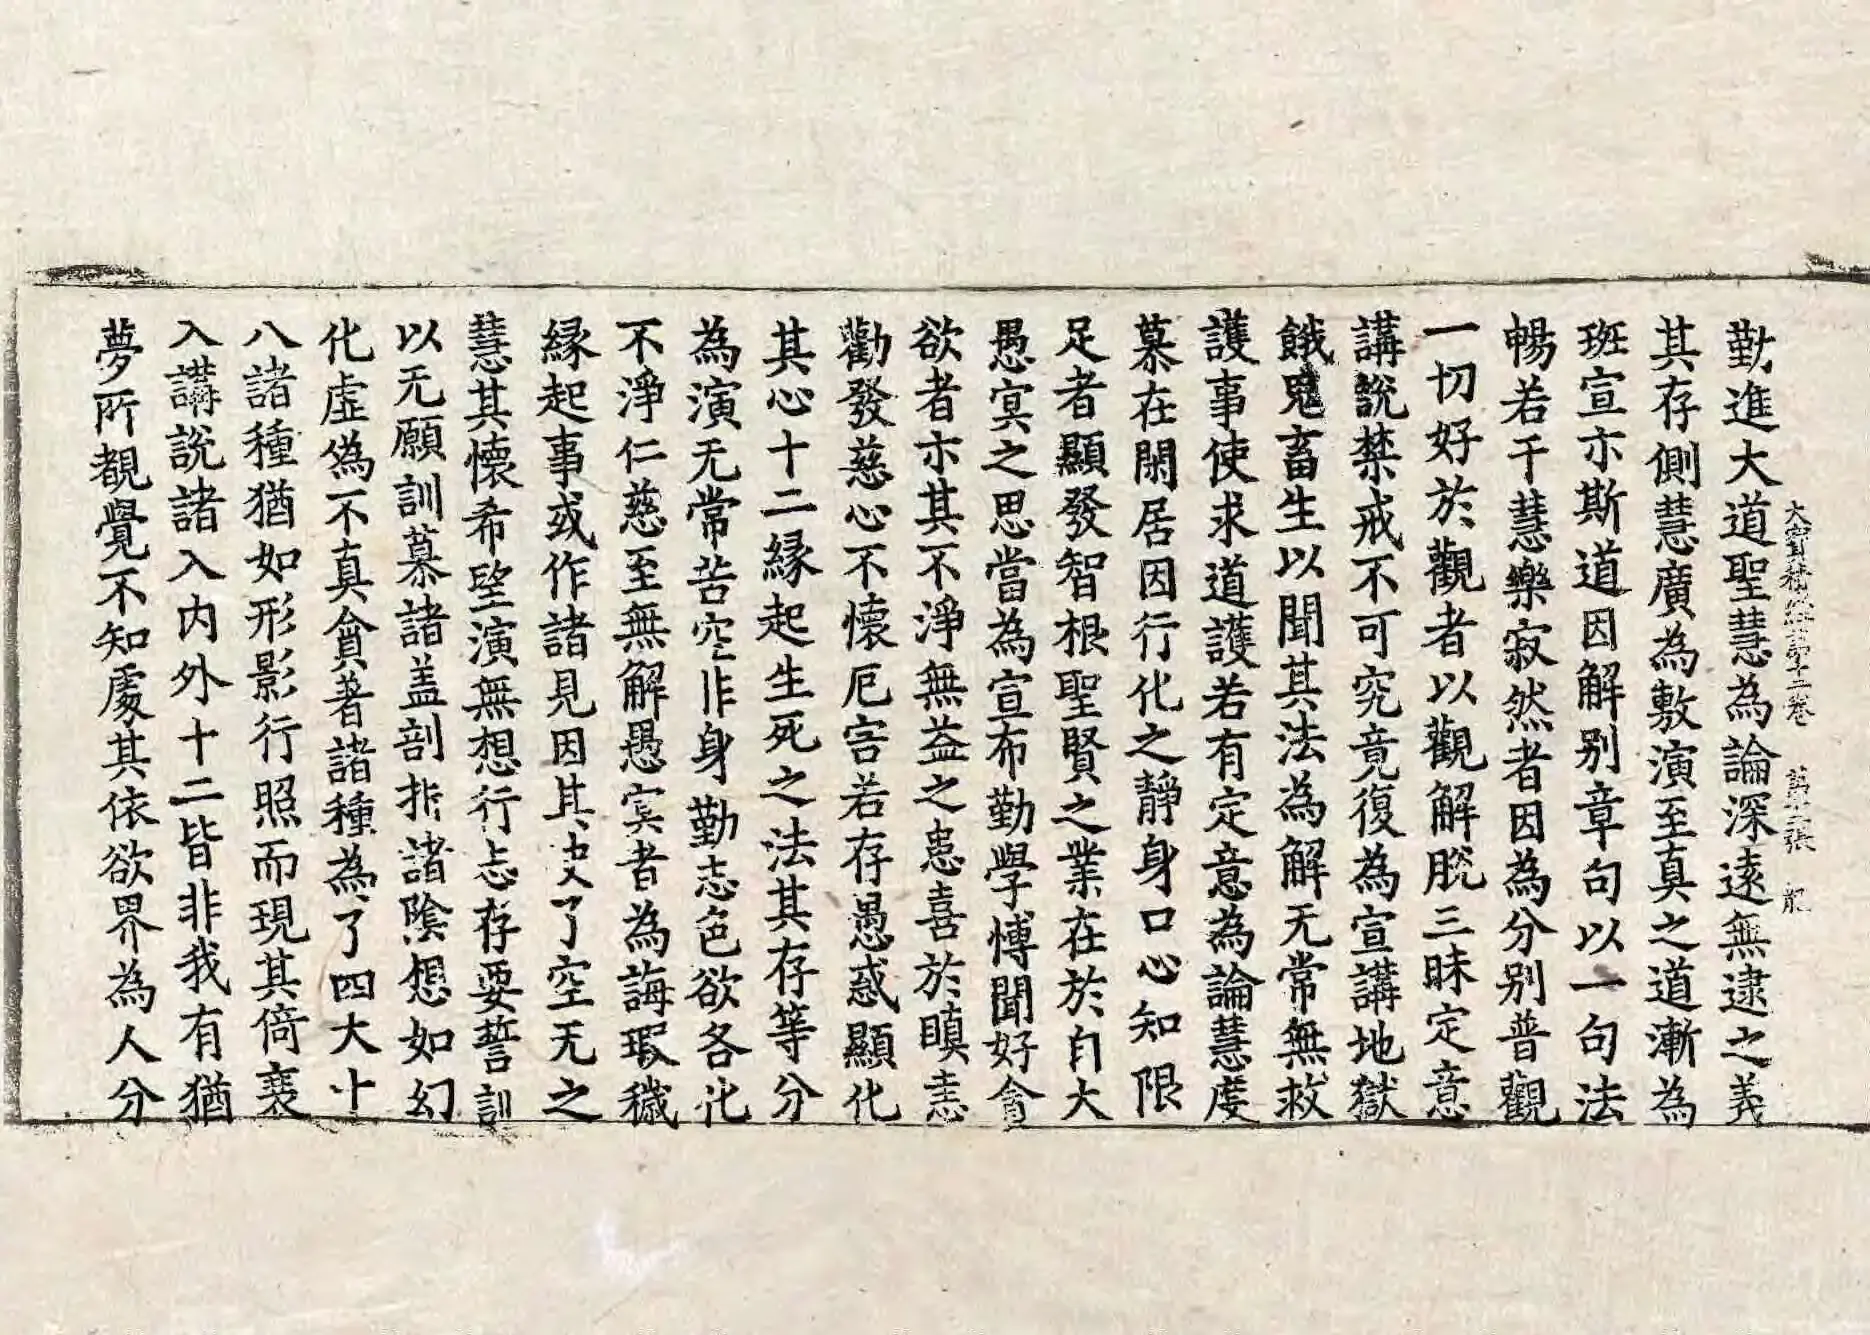 大寶積經第十二卷 第十二張 龍
勤進大道聖慧為論深遠無逮之義
其存側慧廣為敷演至真之道漸為
班宣亦斯道因解別章句以一句法
暢若干慧樂寂然者因為分別普觀
一切好於觀者以觀解脫三昧定意
講說禁戒不可究竟復為宣講地獄
餓鬼畜生以聞其法為解无常無救
護事使求道護若有定意為論慧度
慕在閑居因行化之靜身口心知限
足者顯發智根聖賢之業在於自大
愚冥之思當為宣布勤學博聞好貪
欲者亦其不淨無益之恚喜於瞋恚
勸發慈心不懷厄害若存愚惑顯化
其心十二縁起生死之法其存等分
為演无常苦空非身勤志色欲各化
不淨仁慈至無解愚冥者為誨瑕穢
縁起事或作諸見因其使了空无之
慧其懷希望演無想行志存要誓訓
以无願訓慕諸盖剖折諸陰想如幻
化虛偽不真貪著諸種為了四大十
八諸種猶如形影行照而現其倚衰
入講說諸入内外十二皆非我有猶
夢所覩覺不知處其依欲界為人分